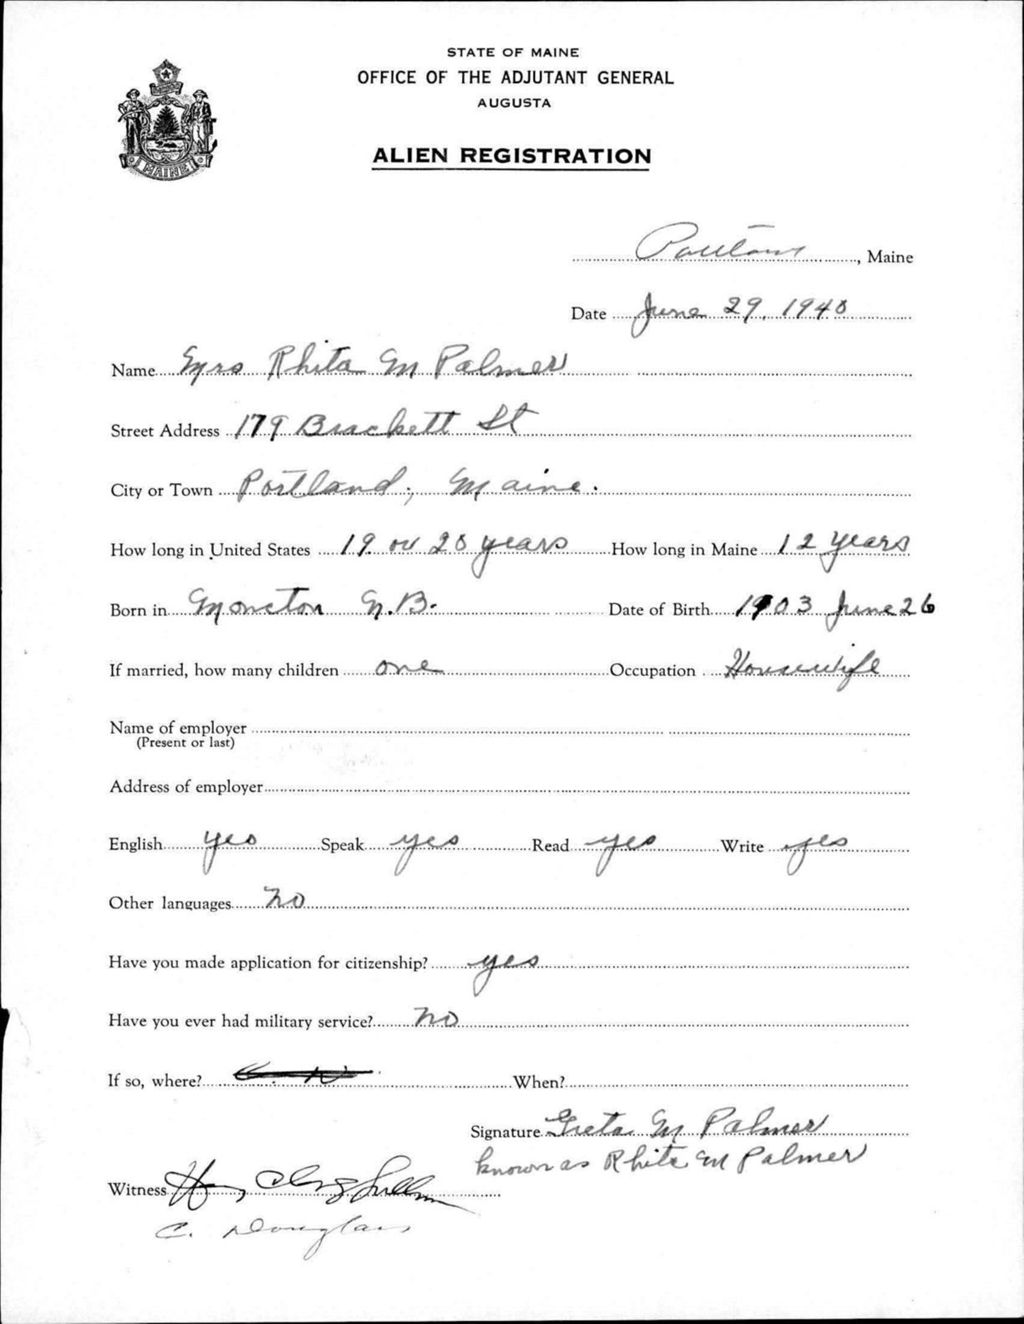 STATE OF MAINE
OFFICE OF THE ADJUTANT GENERAL
AUGUSTA
ALIEN REGISTRATION
MAINE
Portland, Maine
Date June 29, 1940
Name Mrs Rhita M Palmer
Street Address 179 Brackett St
City or Town Portland, Maine.
How long in United States 19 or 20 years How long in Maine 12 years
Born in Moncton N.B. Date of Birth 1903 June 26
If married, how many children one Occupation Housewife
Name of employer
(Present or last)
Address of employer
English yes Speak yes Read yes Write yes
Other languages no
Have you made application for citizenship? yes
Have you ever had military service? no
If so, where? When?
Signature Greta M Palmer
known as Rhita M Palmer
Witness
C. Douglas